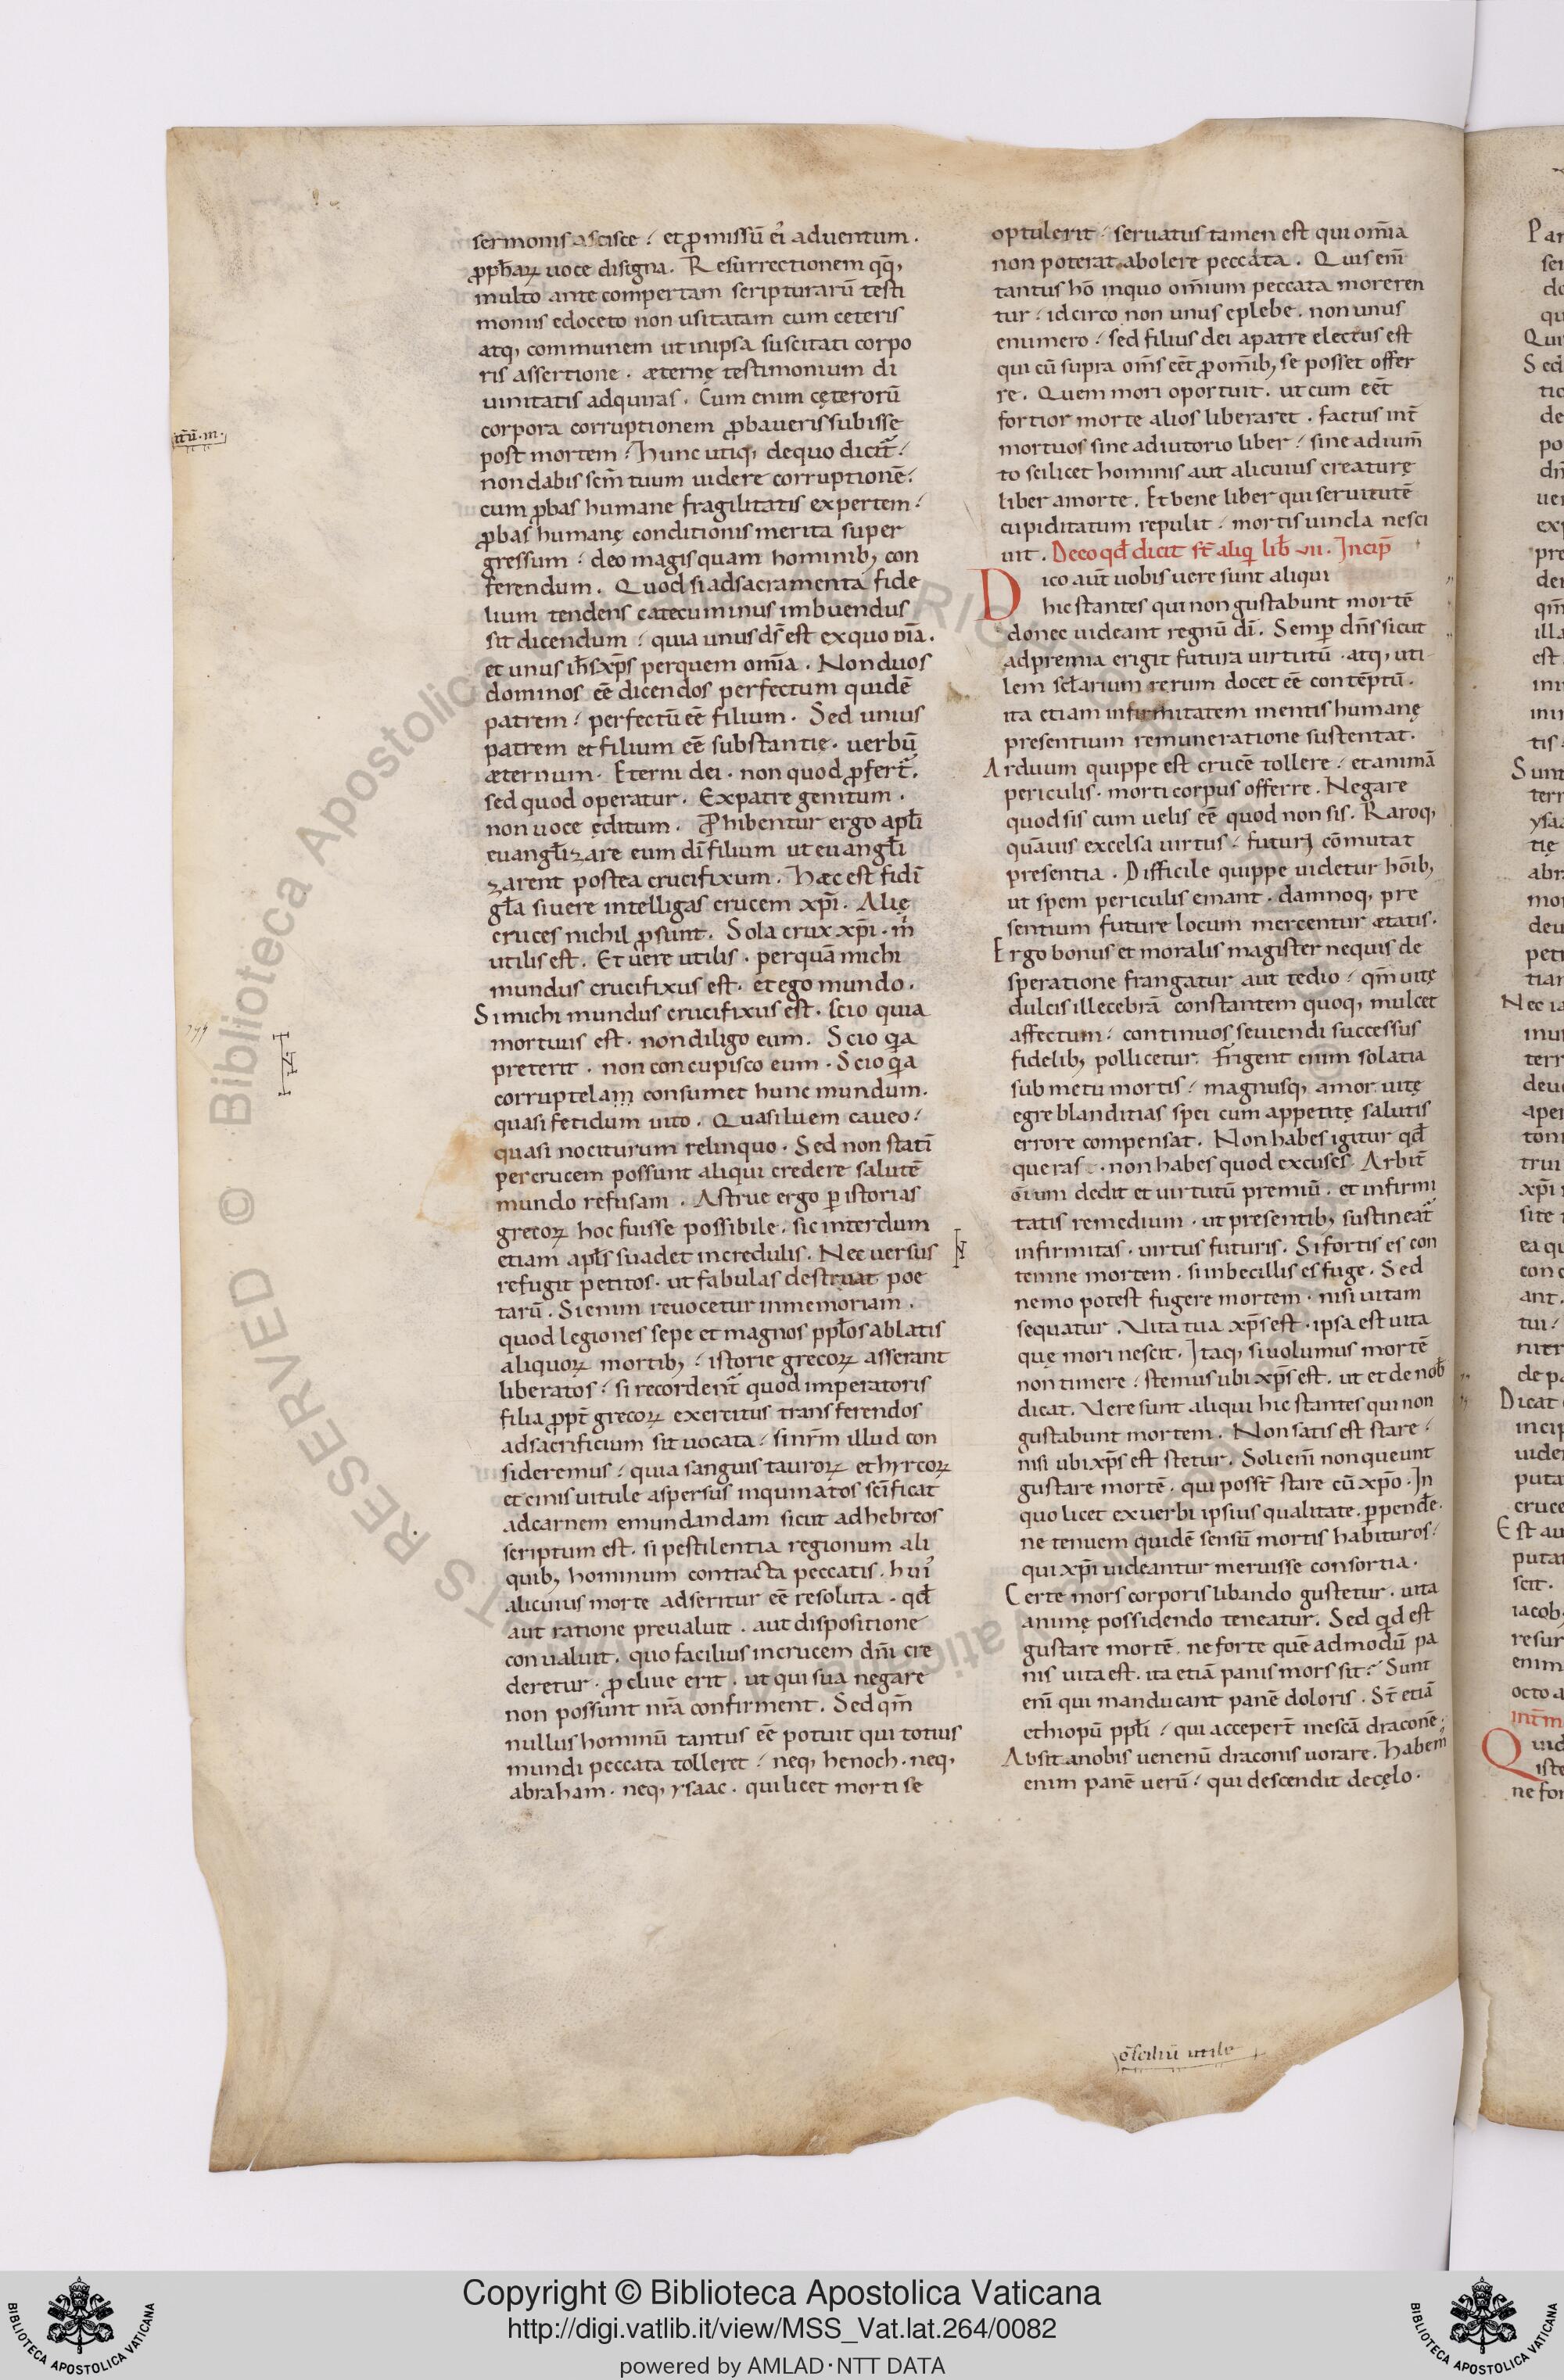 sermonis ascisce / et ꝓmissū ei᾽ aduentum.
ꝓph̄aꝝ uoce disigna. Resurrectionem qq̄,
multo ante compertam scripturarū testi
moniis edoceto non usitatam cum ceteris
atq, communem ut in ipsa suscitati corpo
ris assertione. æternę testimonium di
uinitatis adquiras. Cum enim cęterorū
corpora corruptionem ꝓbaueris subisse
post mortem / hunc utiq, de quo dicit̄ /
non dabis sc̄m tuum uidere corruptionē /
cum ꝓbas humane fragilitatis expertem /
ꝓbas humanę conditionis merita super
gressum / deo magis quam hominib; con
ferendum. Quod si ad sacramenta fide
lium tendens catecuminus imbuendus
sit dicendum / quia unus ds̄ est ex quo om̄ia.
et unus ih̄s xp̄s per quem om̄ia. Non duos
dominos eē dicendos perfectum quidē
patrem / perfectū eē filium. Sed unius
patrem et filium eē substantię. uerbū
æternum. Eterni dei. non quod ꝓfert̄.
sed quod operatur. Ex patre genitum.
non uoce ęditum. Ꝓhibentur ergo apl̄i
euangl̄izare eum dī filium ut euangl̄i
zarent postea crucifixum. Hæc est fidī
gl̄a si uere intelligas crucem xp̄i. Alię
cruces nichil ꝓsunt. Sola crux xp̄i. m̄
utilis est. Et uere utilis. per quā michi
mundus crucifixus est. et ego mundo.
Si michi mundus crucifixus est. scio quia
mortuus est. non diligo eum. Scio qa
preterit. non concupisco eum. Scio qa
corruptelam consumet hunc mundum.
quasi fetidum uito. Quasi luem caueo /
quasi nociturum relinquo. Sed non statī
per crucem possunt aliqui credere salutē
mundo refusam. Astrue ergo ꝑ istorias
grecoꝝ hoc fuisse possibile. sic interdum
etiam apl̄s suadet incredulis. Nec uersus
refugit petitos. ut fabulas destruat poe
tarū. Si enim reuocetur in memoriam.
quod legiones sepe et magnos ppl̄os ablatis
aliquoꝝ mortib; / istorie grecoꝝ asserant
liberatos / si recordent̄ quod imperatoris
filia ꝓpt̄ grecoꝝ exercitus transferendos
ad sacrificium sit uocata / si nr̄m illud con
sideremus / quia sanguis tauroꝝ et hyrcoꝝ
et cinis uitule aspersus inquinatos sc̄ificat
ad carnem emundandam sicut ad hebreos
scriptum est. si pestilentia regionum ali
quib; hominum contracta peccatis. hui᾽
alicuius morte adseritur eē resoluta. qd̄
aut ratione preualuit. aut dispositione
conualuit. quo facilius in crucem dn̄i cre
deretur. ꝓcliue erit. ut qui sua negare
non possunt nr̄a confirment. Sed qm̄
nullus hominū tantus eē potuit qui totius
mundi peccata tolleret / neq, henoch. neq,
abraham. neq, ysaac. qui licet morti se
optulerit / seruatus tamen est qui om̄ia
non poterat abolere peccata. Quis em̄
tantus hō in quo om̄ium peccata moreren
tur / idcirco non unus e plebe. non unus
e numero / sed filius dei a patre electus est
qui cū supra om̄s eēt ꝓ om̄ib; se posset offer
re. Quem mori oportuit. ut cum eēt
fortior morte alios liberaret. factus int̄
mortuos sine adiutorio liber / sine adium̄
to scilicet hominis aut alicuius creaturę
liber a morte. Et bene liber qui seruitutē
cupiditatum repulit / mortis uincla nesci
uit. De eo qd̄ dicit st̄ aliq lib̄ vii. Incip̄
Dico aut̄ uobis uere sunt aliqui
hic stantes qui non gustabunt mortē
donec uideant regnū dī. Semꝑ dn̄s sicut
ad premia erigit futura uirtutū. atq, uti
lem scl̄arium rerum docet eē contēptū.
ita etiam infirmitatem mentis humanę
presentium remuneratione sustentat.
Arduum quippe est crucē tollere / et animā
periculis. morti corpus offerre. Negare
quod sis cum uelis eē quod non sis. Raroq,
quāuis excelsa uirtus / futuris cōmutat
presentia. Difficile quippe uidetur hōib;
ut spem periculis emant. damnoq, pre
sentium future locum mercentur ætatis.
Ergo bonus et moralis magister ne quis de
speratione frangatur aut tedio / qm̄ uitę
dulcis illecebrā constantem quoq, mulcet
affectum / continuos seuiendi successus
fidelib; pollicetur. Frigent enim solatia
sub metu mortis / magnusq, amor uitę
egre blanditias spei cum appetitę salutis
errore compensat. Non habes igitur qd̄
queras. non habes quod excuses. Arbit̄
ōium dedit et uirtutū premiū. et infirmi
tatis remedium. ut presentib; sustineat̄
infirmitas. uirtus futuris. Si fortis es con
temne mortem. si inbecillis es fuge. Sed
nemo potest fugere mortem. nisi uitam
sequatur. Vita tua xp̄s est. ipsa est uita
quę mori nescit. Itaq, si uolumus mortē
non timere / stemus ubi xp̄s est. ut et de nob̄
dicat. Vere sunt aliqui hic stantes qui non
gustabunt mortem. Non satis est stare /
nisi ubi xp̄s est stetur. Soli eni non queunt
gustare mortē. qui posst̄ stare cū xp̄o. In
quo licet ex uerbi ipsius qualitate. ꝑpende.
ne tenuem quidē sensū mortis habituros /
qui xp̄i uideantur meruisse consortia.
Certe mors corporis libando gustetur. uita
animę possidendo teneatur. Sed qd est
gustare mortē. ne forte quē admodū pa
nis uita est. ita etiā panis mors sit / Sunt
enī qui manducant panē doloris. St̄ etiā
ethiopū ppl̄i / qui accepert̄ in escā draconē.
Absit a nobis uenenū draconis uorare. Habem᾽
enim panē uerū / qui descendit de cęlo.
c̄siliū utile
Copyright © Biblioteca Apostolica Vaticana
http://digi.vatlib.it/view/MSS_Vat.lat.264/0082
powered by AMLAD·NTT DATA
BIBLIOTECA APOSTOLICA VATICANA
BIBLIOTECA APOSTOLICA VATICANA